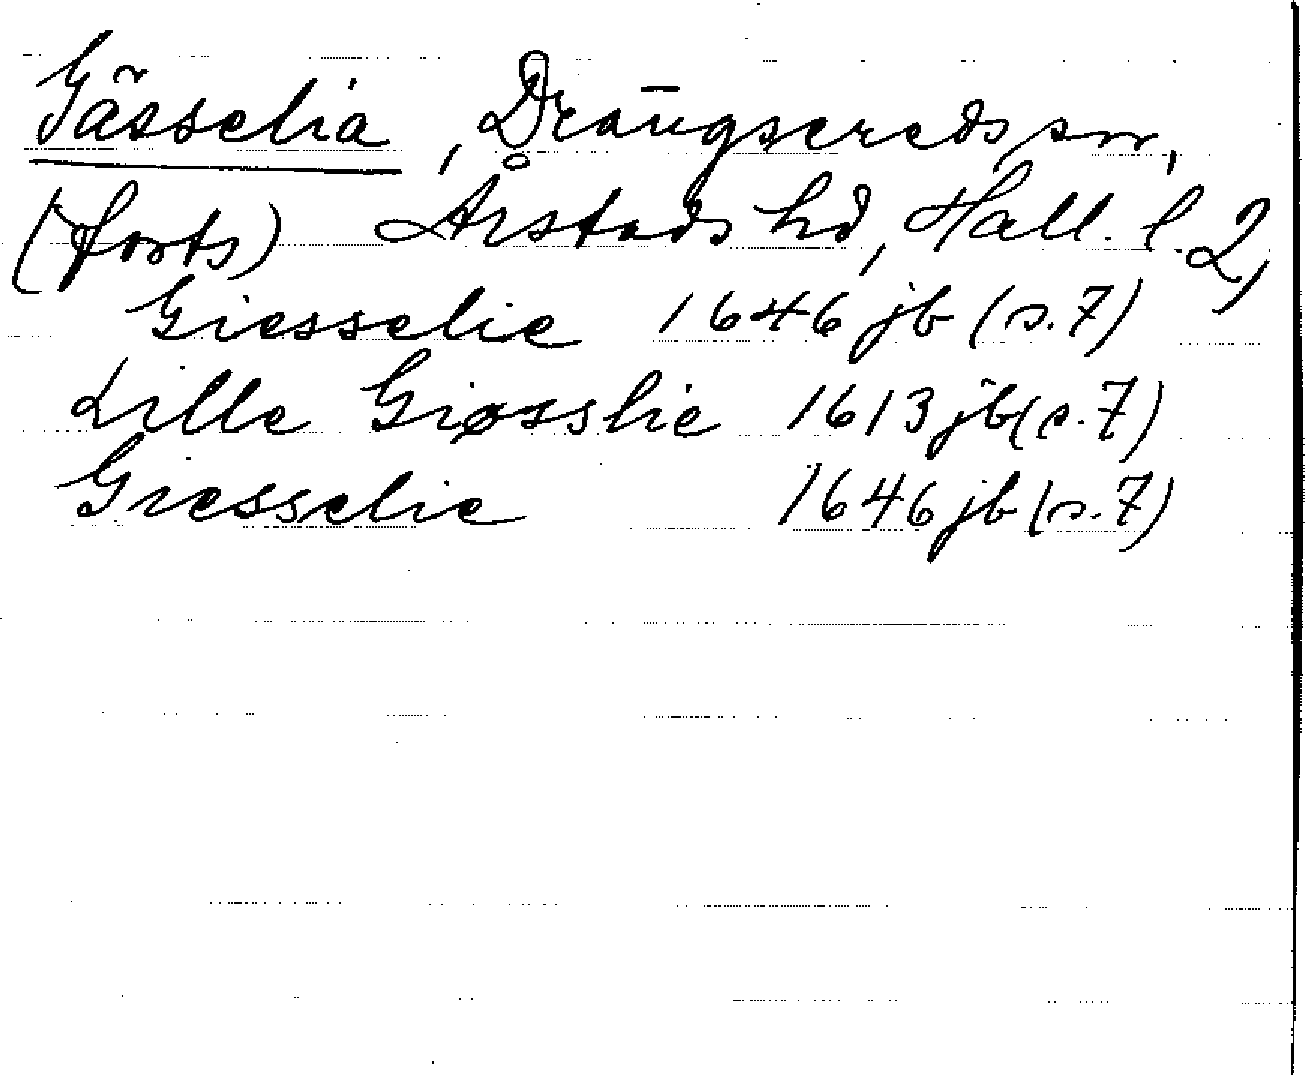 Gässelia, Drängsereds sn,
(forts) Årstads hd, Hall. l. 2,
Giesselie 1646 jb (s. 7)
Lille Giøsslie 1613 jb (s. 7)
Giesselie 1646 jb (s. 7)